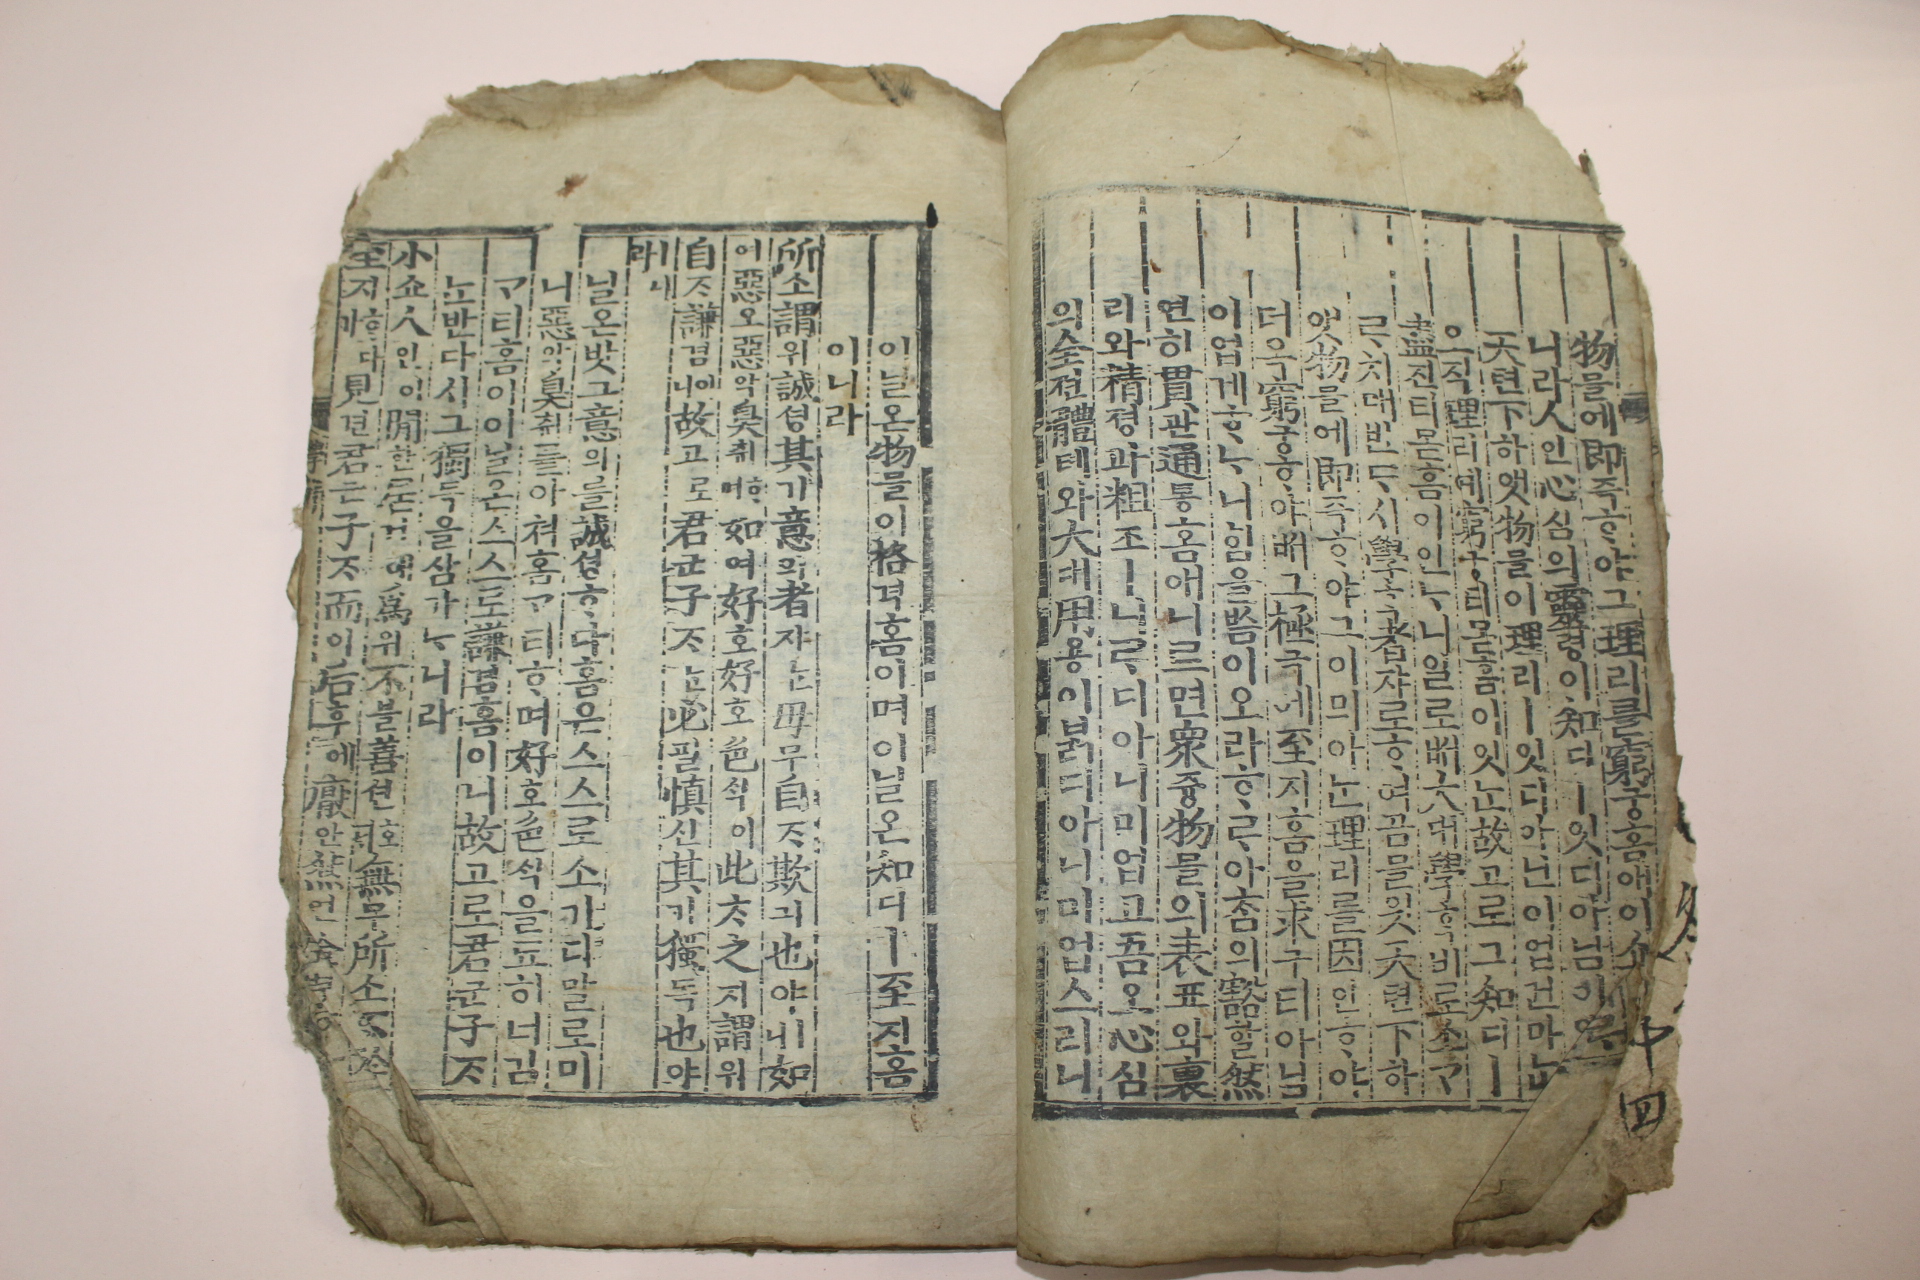 物믈에卽즉ᄒᆞ야그理리를窮궁홈애이쇼
니라人인心심의靈령이知디ㅣ잇디아님이
天텬下하앳物믈이理리ㅣ잇디아닌이업건마ᄂᆞᆫ
오직理리예窮궁티몯홈이잇ᄂᆞᆫ故고로그知디ㅣ
盡진티몯홈이인ᄂᆞ니일로ᄡᅥ大대學ᄒᆞᆨ비로소ᄀᆞ
ᄅᆞ치매반ᄃᆞ시學ᄒᆞᆨ者쟈로ᄒᆞ여곰믈읫天텬下하
앳物믈에卽즉ᄒᆞ야그이믜아ᄂᆞᆫ理리를因인ᄒᆞ야
더욱窮궁ᄒᆞ야ᄡᅥ그極극네至지홈을求구티아님
이업게ᄒᆞᄂᆞ니힘을ᄡᅳᆷ이오라ᄒᆞᄅᆞ아ᄎᆞᆷ의豁활然
연히貫관通통홈애니르면衆즁物믈의表표와裏
리와精졍과粗조ㅣ니ᄅᆞ디아니미업고吾오心심
의全젼體톄와大대用용이ᄇᆞᆰ디아니미업스리니
中四
이닐온物믈이格격홈이며이닐온知디ㅣ至지홈
이니라
所소謂위誠셩其기意의者쟈ᄂᆞᆫ毋무自ᄌᆞ欺긔也야ㅣ니如
여惡오惡악臭ᄎᆔᄒᆞ며如여好호好호色ᄉᆡᆨ이此ᄎᆞ之지謂위
自ᄌᆞ謙겸이니故고로君군子ᄌᆞᄂᆞᆫ必필愼신其기獨독也야
ㅣ니라
닐온밧그意의를誠셩ᄒᆞ다홈은스스로소기디말로미
니惡악臭ᄎᆔ를아쳐홈ᄀᆞ티ᄒᆞ며好호色ᄉᆡᆨ을됴히너김
ᄀᆞ티홈이이닐온스스로謙겸홈이니故고로君군子ᄌᆞ
ᄂᆞᆫ반다시그獨독을삼가ᄂᆞ니라
小쇼人인이閒한居거에爲위不블善션호ᄃᆡ無무所소不블
至지ᄒᆞ다가見견君군子ᄌᆞ而이后후에厭안然연